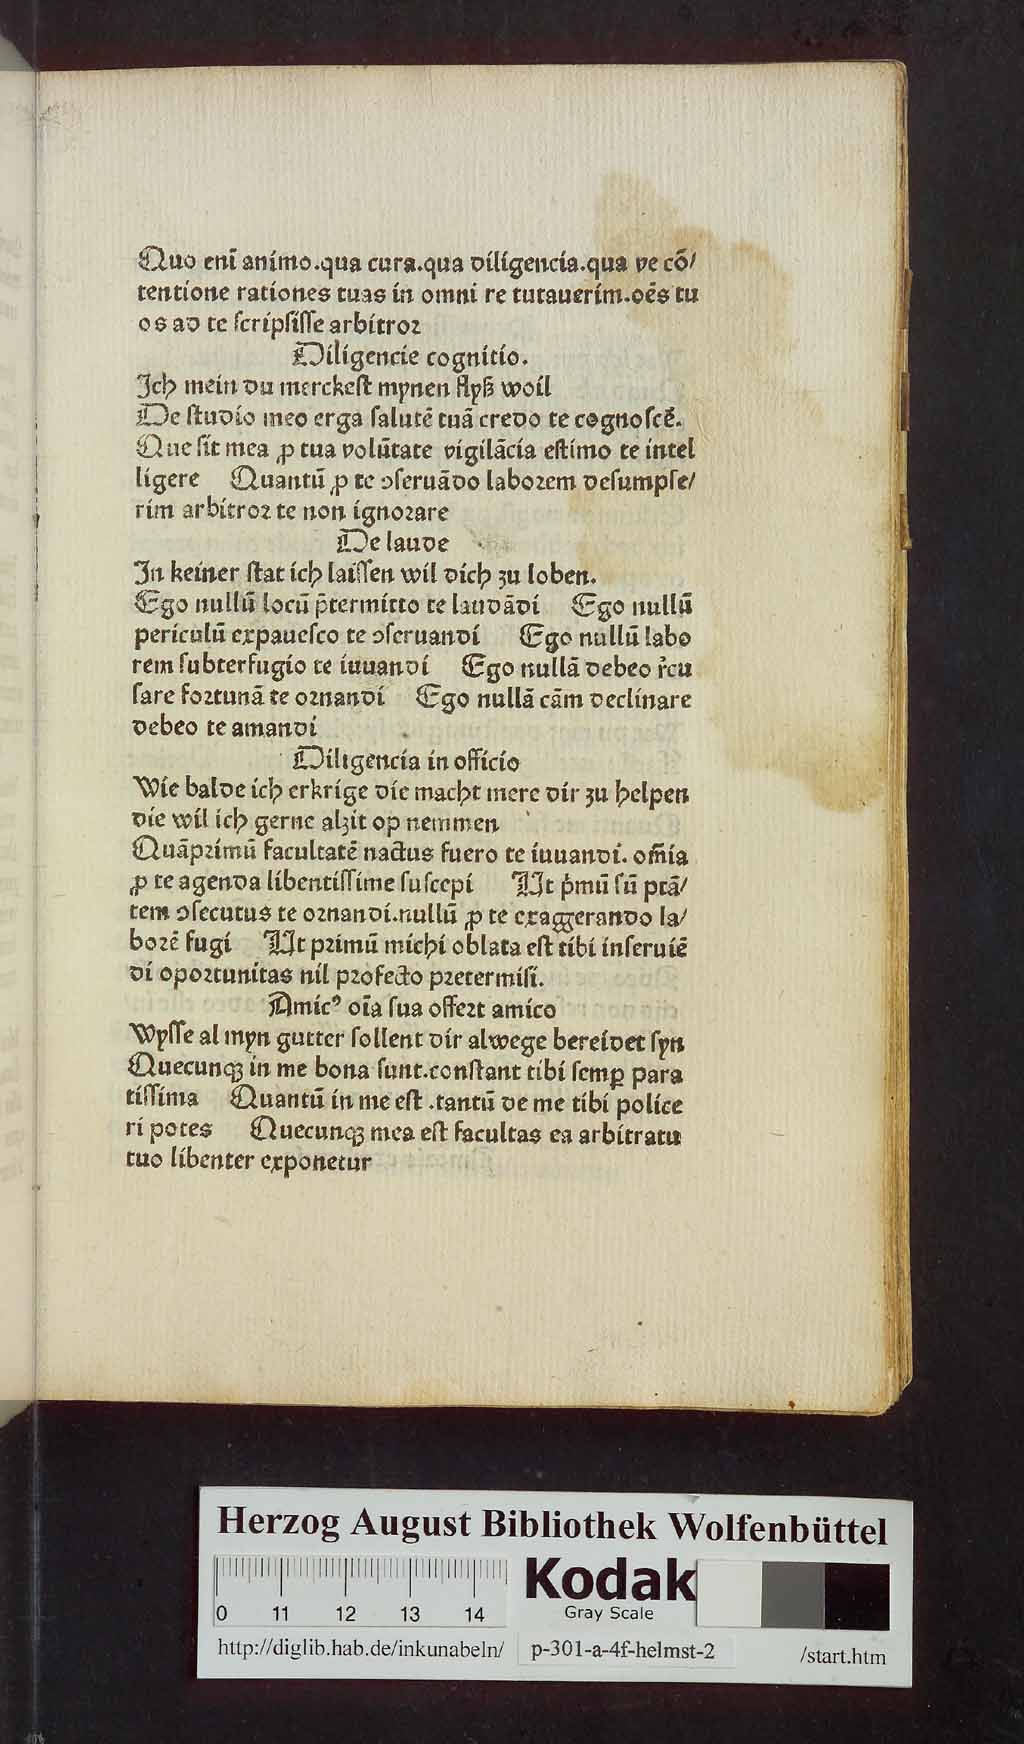 Quo enī animo.qua cura.qua diligencia.qua ve cō/
tentione rationes tuas in omni re tutauerim.oēs tu
os ad te ſcripſiſſe arbitroꝛ
Diligencie cognitio.
Ich mein du merckeſt mynen flyß woil
De ſtudio meo erga ſalutē tuā credo te cognoſcē.
Que ſit mea ꝓ tua volūtate vigilācia eſtimo te intel
ligere Quantū ꝓ te ↄſeruādo laboꝛem deſumpſe/
rim arbitroꝛ te non ignoꝛare
De laude
In keiner ſtat ich laiſſen wil dich zu loben.
Ego nullū locū p̄termitto te laudādi Ego nullū
periculū expaueſco te ↄſeruandi Ego nullū labo
rem ſubterfugio te iuuandi Ego nullā debeo r̄cu
ſare foꝛtunā te oꝛnandi Ego nullā cām declinare
debeo te amandi
Diligencia in officio
Wie balde ich erkrige die macht mere dir zu helpen
die wil ich gerne alzit op nemmen
Quāpꝛimū facultatē nactus fuero te iuuandi. om̄ia
ꝓ te agenda libentiſſime ſuſcepi Ut p̄mū ſū ptā/
tem ↄſecutus te oꝛnandi.nullū ꝓ te exaggerando la/
boꝛē fugi Ut pꝛimū michi oblata eſt tibi inſeruiē
di opoꝛtunitas nil pꝛofecto pꝛetermiſi.
Amicꝰ oīa ſua offeꝛt amico
Wyſſe al myn gutter ſollent dir alwege bereidet ſyn
Quecunqꝫ in me bona ſunt.conſtant tibi ſemꝑ para
tiſſima Quantū in me eſt .tantū de me tibi police
ri potes Quecunqꝫ mea eſt facultas ea arbitratu
tuo libenter exponetur
Herzog August Bibliothek Wolfenbüttel
0 11 12 13 14
Kodak
Gray Scale
http://diglib.hab.de/inkunabeln/ p-301-a-4f-helmst-2 /start.htm